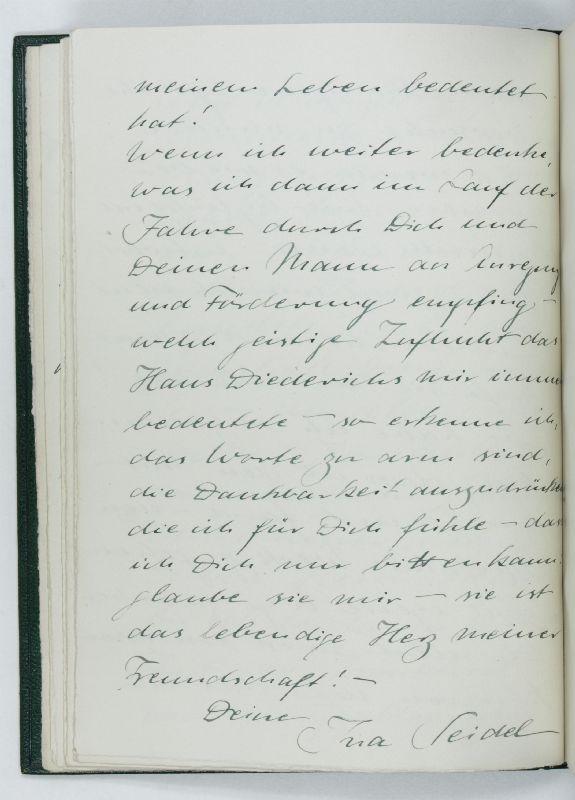 meinem Leben bedeutet
hat!
Wenn ich weiter bedenke,
was ich dann im Lauf der
Jahre durch Dich und
Deinen Mann an Anregung
und Förderung empfing –
welch geistige Zuflucht das
Haus Diederichs mir immer
bedeutete – so erkenne ich,
das Worte zu arm sind,
die Dankbarkeit auszudrücken
die ich für Dich fühle – das
ich Dich nur bitten kann:
glaube sie mir – sie ist
das lebendige Herz meiner
Freundschaft! –
Deine
Ina Seidel